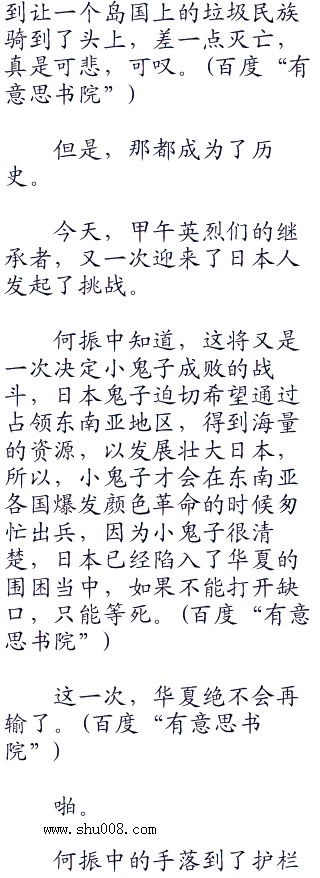 到让一个岛国上的垃圾民族
骑到了头上，差一点灭亡，
真是可悲，可叹。(百度“有
意思书院”)
但是，那都成为了历
史。
今天，甲午英烈们的继
承者，又一次迎来了日本人
发起了挑战。
何振中知道，这将又是
一次决定小鬼子成败的战
斗，日本鬼子迫切希望通过
占领东南亚地区，得到海量
的资源，以发展壮大日本，
所以，小鬼子才会在东南亚
各国爆发颜色革命的时候匆
忙出兵，因为小鬼子很清
楚，日本已经陷入了华夏的
围困当中，如果不能打开缺
口，只能等死。(百度“有意
思书院”)
这一次，华夏绝不会再
输了。(百度“有意思书
院”)
啪。
www.shu008.com
何振中的手落到了护栏